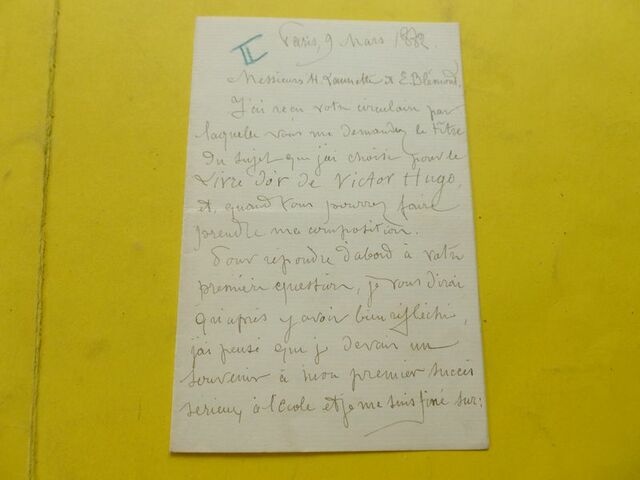 II
Paris, 9 Mars 1882.
Messieurs H. Launette et E. Blémont,
J'ai reçu votre circulaire par
laquelle vous me demandez le titre
du sujet que j'ai choisi pour le
Livre d'or de Victor Hugo,
et, quand vous pourrez faire
prendre ma composition.
Pour répondre d'abord à votre
première question, je vous dirai
qu'après y avoir bien réfléchi,
j'ai pensé que je devais un
souvenir à mon premier succès
sérieux, à l'école et je me suis fixé sur: